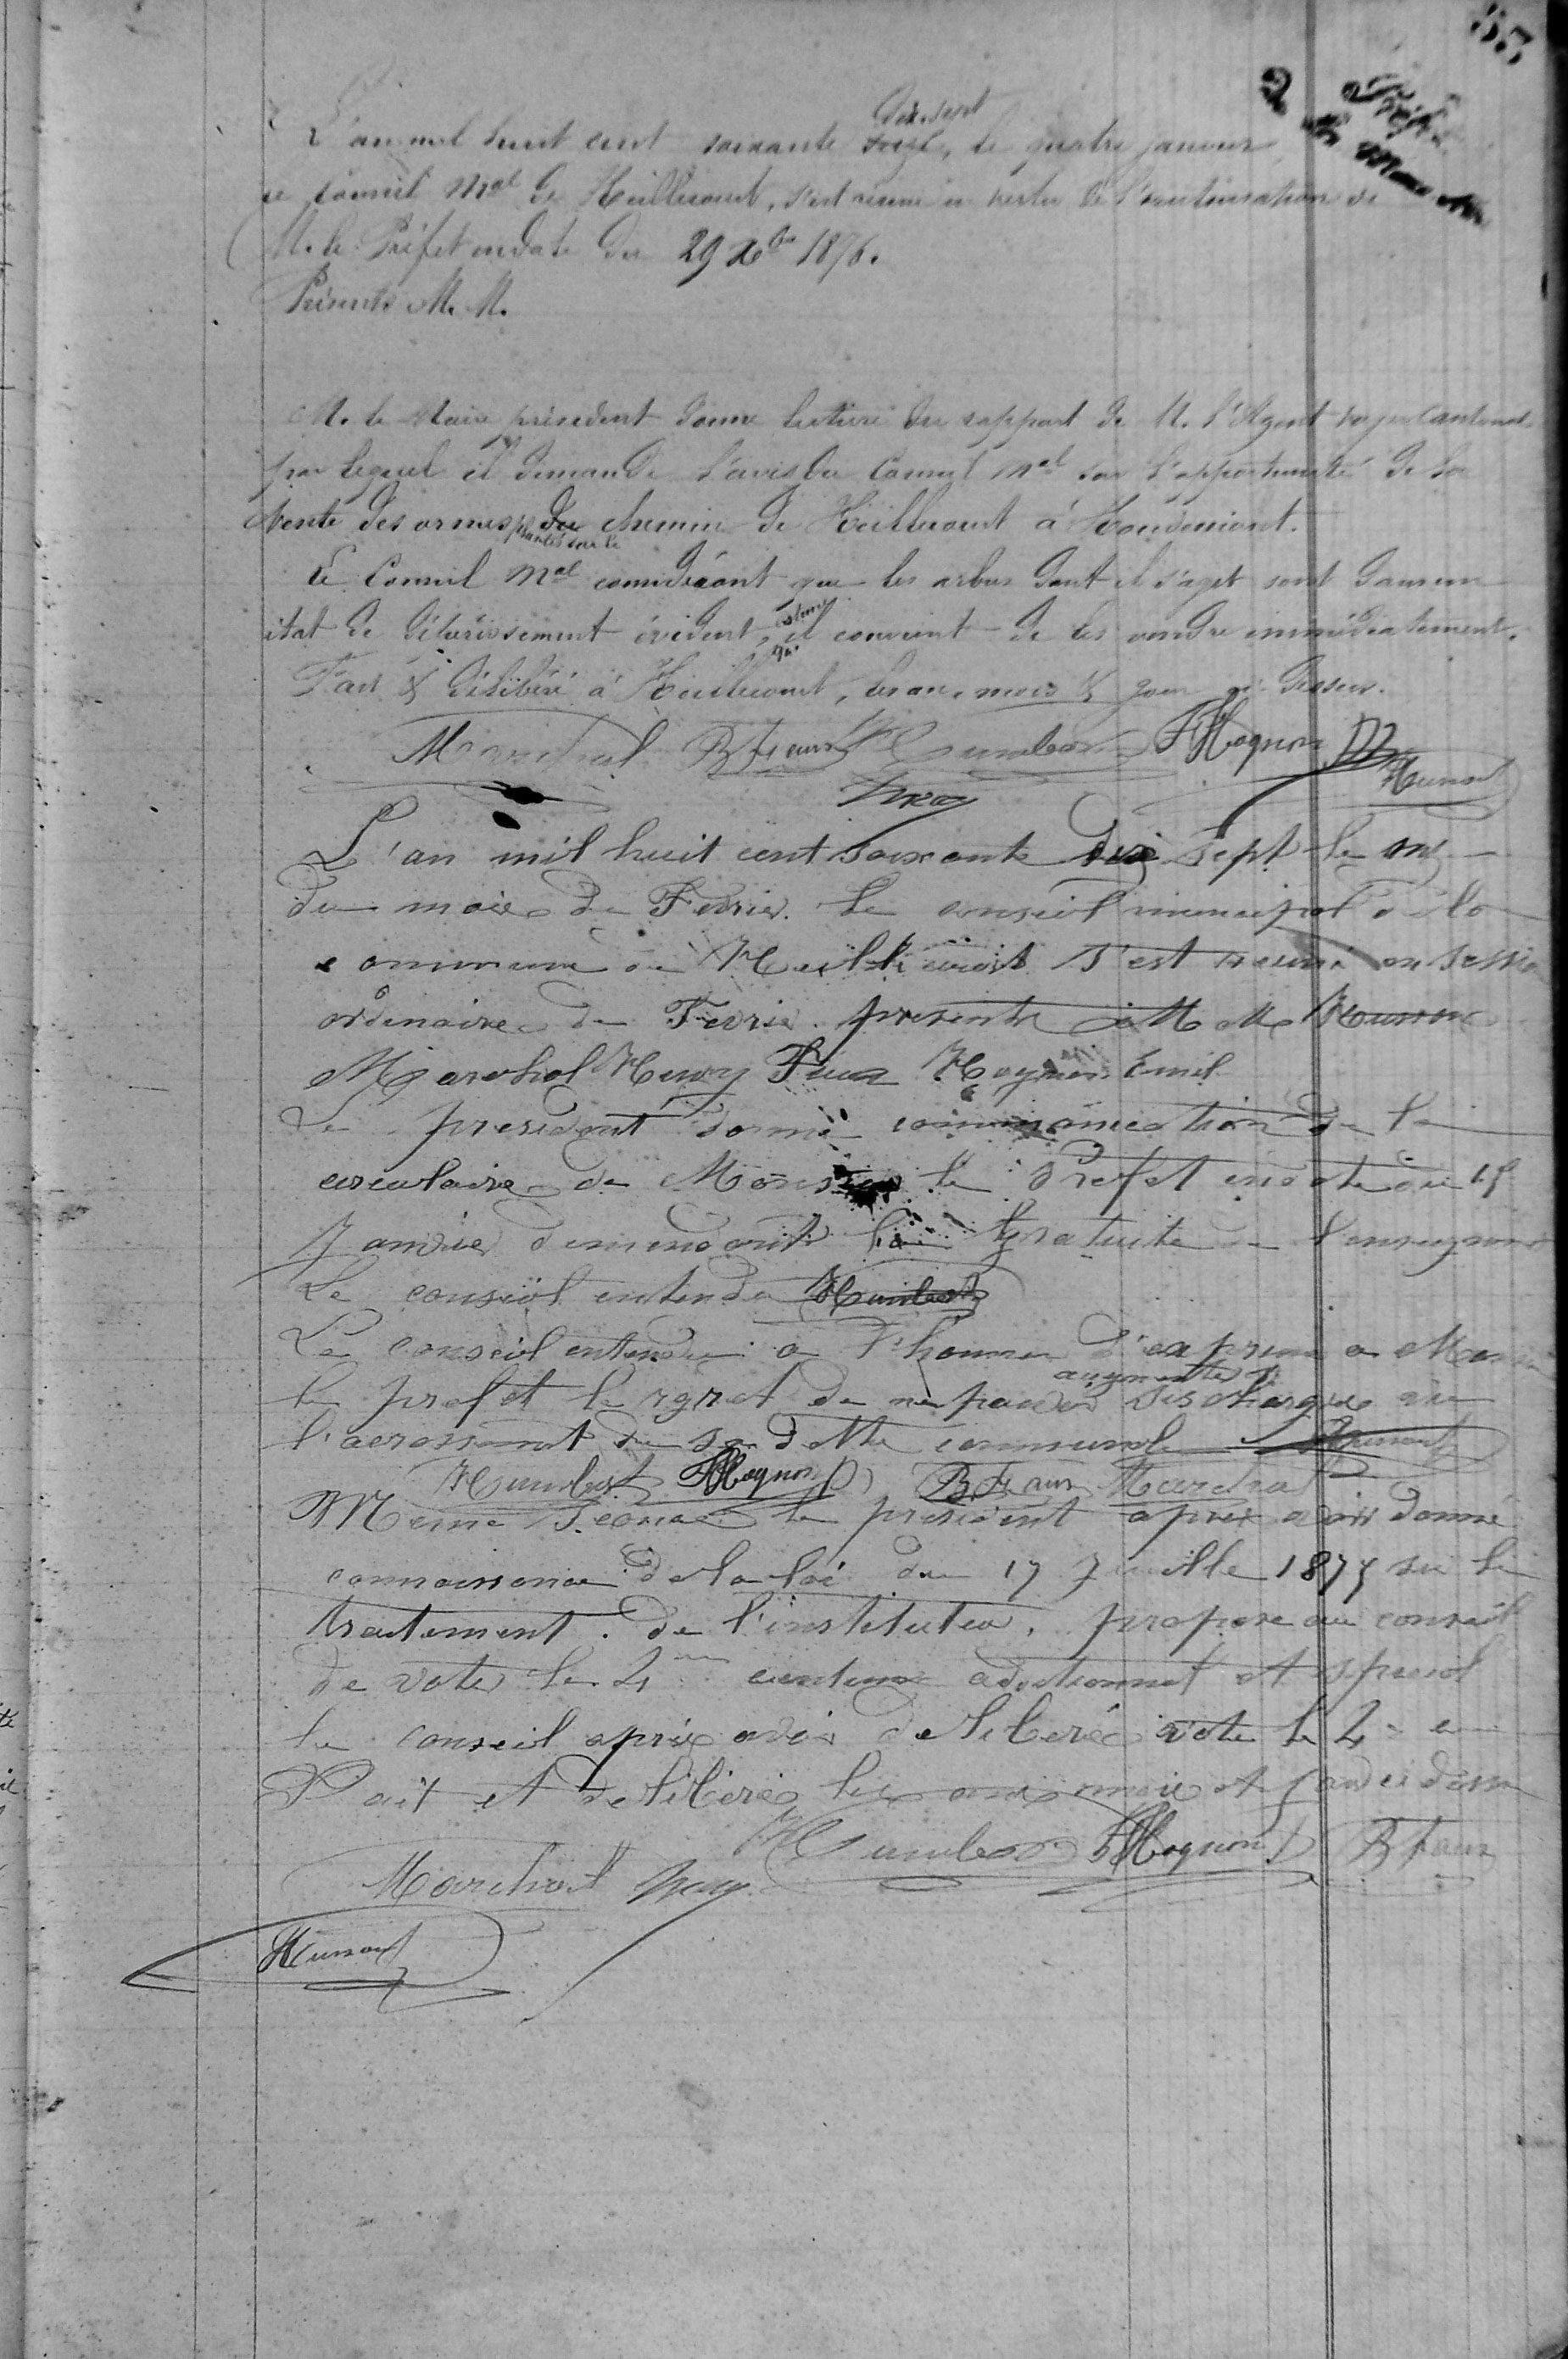 L'an mil huit cent soixante dix-sept, le quatre janvier
le Conseil Mal de Huillecourt, s'est réuni en vertu de l'autorisation de
M. le Préfet en date du 29 Xbre 1876.
Présents M. M.
M. le Maire président donne lecture du rapport de M. l'Agent voyer Cantonal
par lequel il demande l'avis du Conseil Mal sur l'opportunité de la
vente des ormes plantés sur le chemin de Huillecourt à
Le Conseil Mal considérant que les arbres dont il s'agit sont dans un
état de dépérissement évident, estime qu'il convient de les vendre immédiatement.
Fait & délibéré à Huillecourt, les an, mois & jour ci-dessus.
Marchal B Faux Humbert F Mognon
Husson
Huroy
L'an mil huit cent soixante dix sept le
du mois de Fevrier le conseil municipal de la
commune de Huillecourt s'est reuni en sessio
ordinaire de Fevrie presents M M Husson
Marchal Huroy Faux Mognon Emil
Le president donne communication de la
circulaire de Monsieur le Prefet en date du 15
Janvier demendant la gratuite
Le conseil entendu Humbert
Le conseil entendu a l'honneur d'exprime a
le prefet le rgret de ne pouvoir augmenter ses charges
l'acrossement de sa dette communale Husson
Humbert F Mognon B Faux Marchal
Meme Seance le president apres avoir donné
connaissence de la loi du 17 Juille 1875 su le
traitement de l'instituteur, propose au conseil
de voter le 4me centime aditionnel et special
le conseil apres avoir deliberé vote le 4
Fait et deliberé les ans mois et jour ci dessu
Humbert F Mognon B Faux
Marchal Huroy
Husson